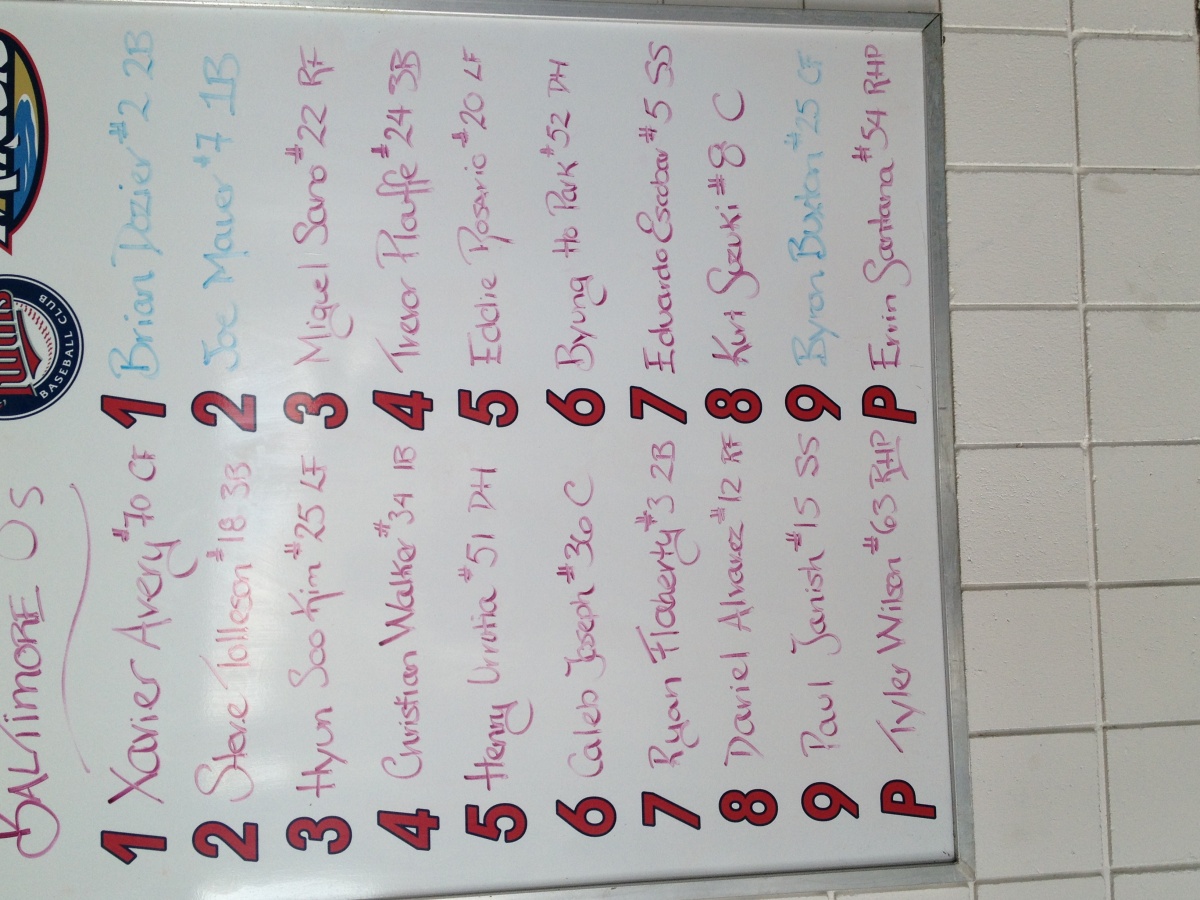 BALTIMORE O's
1 Xavier Avery #70 CF
2 Steve Tolleson #18 3B
3 Hyun Soo Kim #25 LF
4 Christian Walker #34 1B
5 Henry Urrutia #51 DH
6 Caleb Joseph #36 C
7 Ryan Flaherty #3 2B
8 Dariel Alvarez #12 RF
9 Paul Janish #15 SS
P Tyler Wilson #63 RHP
BASEBALL CLUB
1 Brian Dozier #2 2B
2 Joe Mauer #7 1B
3 Miguel Sano #22 RF
4 Trevor Plouffe #24 3B
5 Eddie Rosario #20 LF
6 Byung Ho Park #52 DH
7 Eduardo Escobar #5 SS
8 Kurt Suzuki #8 C
9 Byron Buxton #25 CF
P Ervin Santana #54 RHP